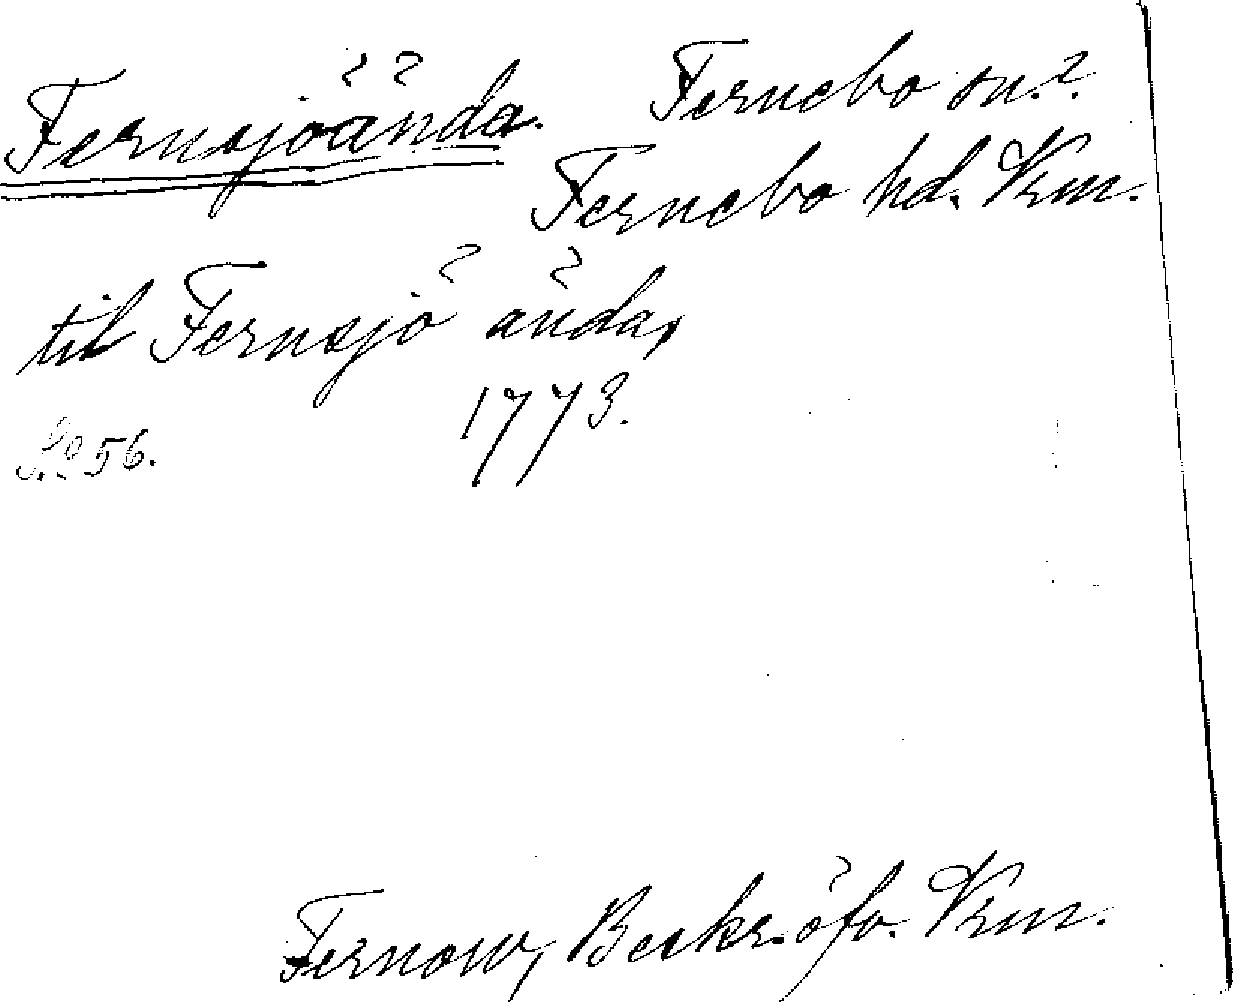 Fernsjöända. Fernebo sn.?.
Fernebo hd. Vrm.
til Fernsjö ända,
1773.
S. 56.
Fernow, Beskr. öfv. Vrm.